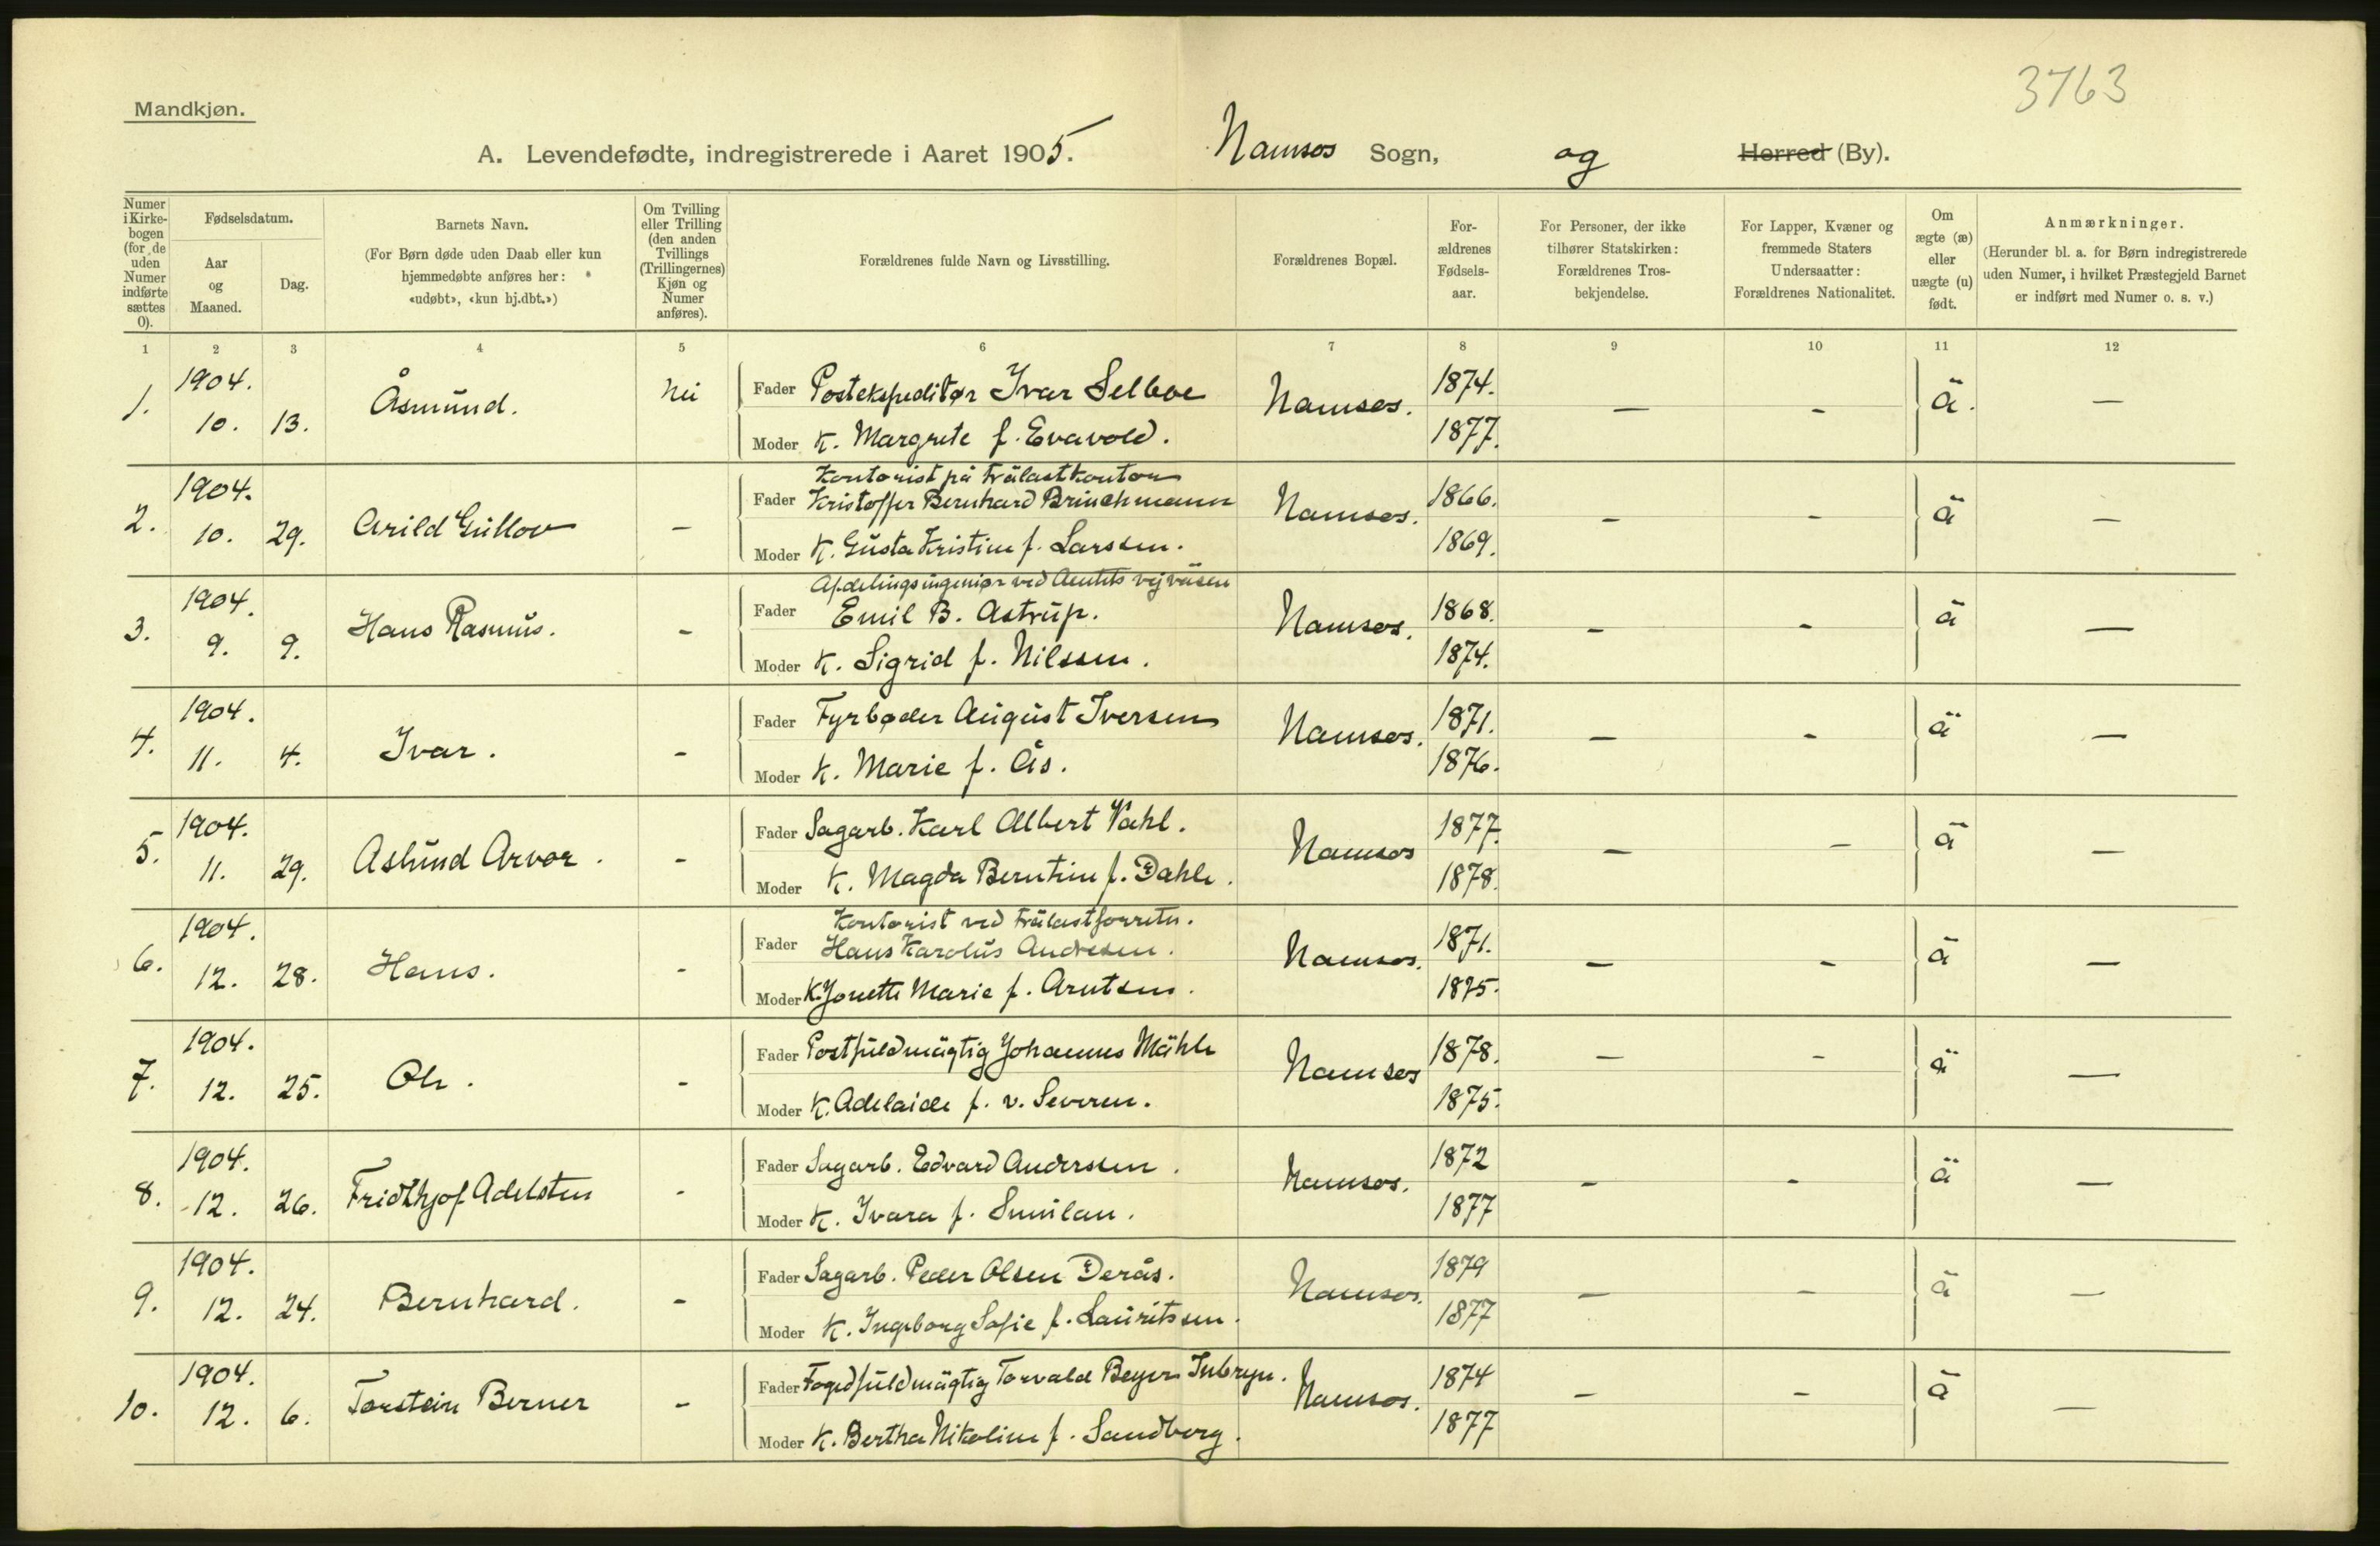 3763
Mandkjøn.
A. Levendefødte, indregistrerede i Aaret 1905. Namsos Sogn, og Herred (By).
Numer i Kirke-bogen (for de uden Numer indførte sættes 0).
Fødselsdatum.
Aar og Maaned.
Dag.
Barnets Navn.
(For Børn døde uden Daab eller kun hjemmedøbte anføres her: «udøbt», «kun hj.dbt.»)
Om Tvilling eller Trilling (den anden Tvillings (Trillingernes) Kjøn og Numer anføres).
Forældrenes fulde Navn og Livsstilling.
Forældrenes Bopæl.
For-ældrenes Fødsels-aar.
For Personer, der ikke tilhører Statskirken: Forældrenes Tros-bekjendelse.
For Lapper, Kvæner og fremmede Staters Undersaatter: Forældrenes Nationalitet.
Om ægte (æ) eller uægte (u) født.
Anmærkninger.
(Herunder bl. a. for Børn indregistrerede uden Numer, i hvilket Præstegjeld Barnet er indført med Numer o. s. v.)
1 2 3 4 5 6 7 8 9 10 11 12
1. 1904. 10. 13. Åsmund. Nei Fader Postekspeditør Ivar Selboe Namsos. 1874. — - ä. —
Moder K. Margrete f. Evavold. 1877.
Kontorist på trälastkontor
2. 1904. 10. 29. Arild Gullov - Fader Kristoffer Bernhard Brinchmann Namsos. 1866. - - ä —
Moder K. Gusta Kristine f. Larssen. 1869.
Afdelingsingeniør ved Amtets vejväsen
3. 1904. 9. 9. Hans Rasmus. - Fader Emil B. Astrup. Namsos. 1868. - - ä —
Moder K. Sigrid f. Nilssen. 1874.
4. 1904. 11. 4. Ivar. - Fader Fyrbøder August Iversen Namsos. 1871. - - ä —
Moder K. Marie f. Ås. 1876.
5. 1904. 11. 29. Aslund Arvor. - Fader Sagarb. Karl Albert Vahl. Namsos 1877. - - ä —
Moder K. Magda Berntine f. Dahle. 1878.
Kontorist ved trälastforretn.
6. 1904. 12. 28. Hans. - Fader Hans Karolus Andresen. Namsos. 1871. - - ä —
Moder K. Jonette Marie f. Arntsen. 1875.
7. 1904. 12. 25. Ole. - Fader Postfuldmägtig Johannes Mähle Namsos 1878. - - ä —
Moder K. Adelaide f. v. Severen. 1875.
8. 1904. 12. 26. Fridthjof Adelsten - Fader Sagarb. Edvard Anderssen. Namsos. 1872 - - ä —
Moder K. Ivara f. 1877
9. 1904. 12. 24. Bernhard. - Fader Sagarb. Peder Olsen Derås. Namsos. 1879 - - ä —
Moder K. Ingeborg Sofie f. Lauritssen. 1877
10. 1904. 12. 6. Torstein Berner - Fader Fogedfuldmägtig Torvald Beyer Namsos. 1874 - - ä —
Moder K. Bertha Nikoline f. Sandberg. 1877